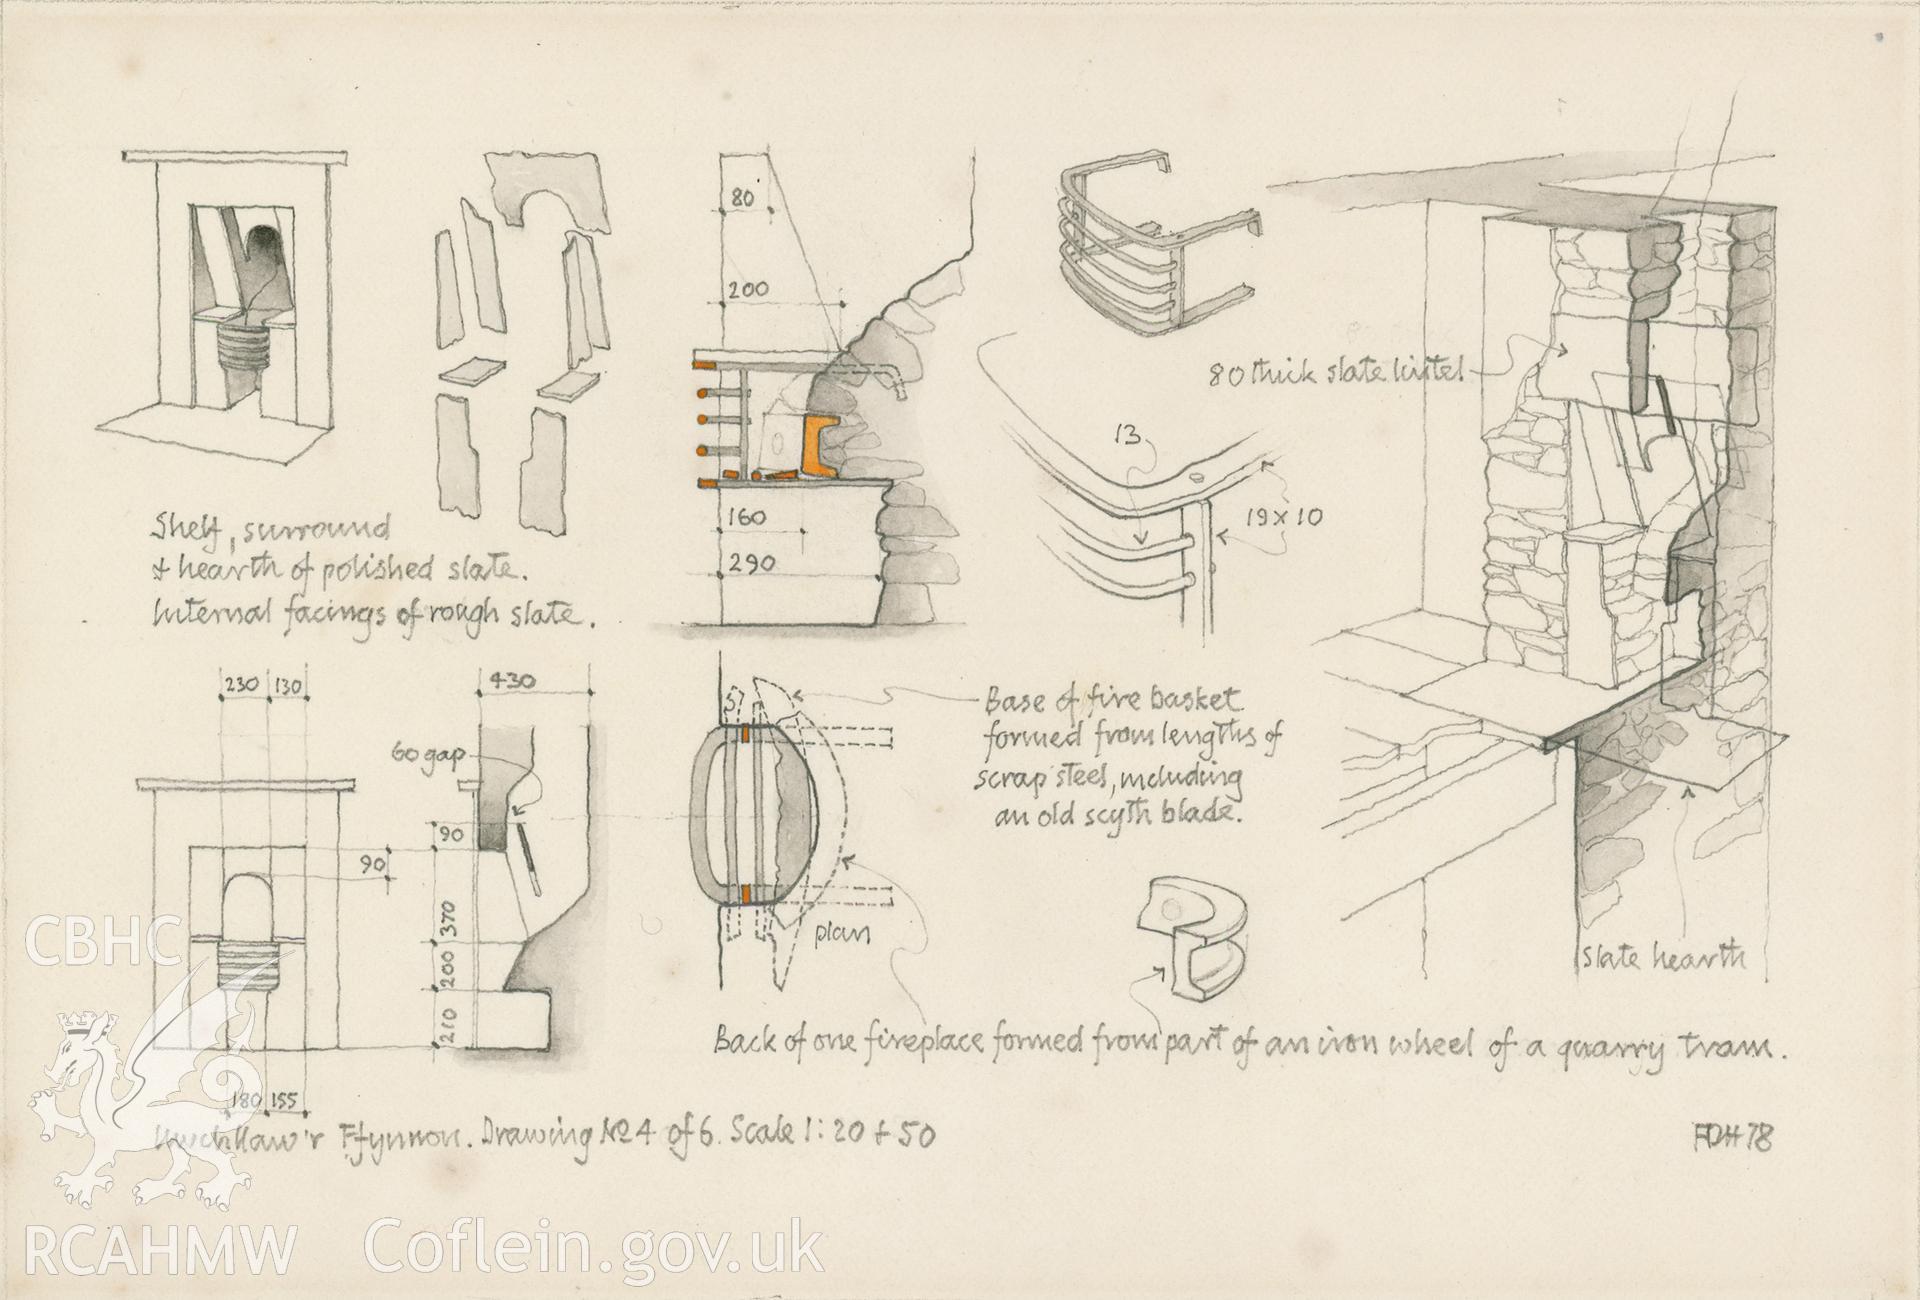 80
200
80 thick slate lintel
13
19 x 10
160
290
Shelf, surround
& hearth of polished slate.
Internal facings of rough slate.
230 130
430
60 gap
90
90
370
200
210
180 155
Base of fire basket
formed from lengths of
scrap steel, including
an old scyth blade.
plan
slate hearth
Back of one fireplace formed from part of an iron wheel of a quarry tram.
Ffynnon. Drawing No 4 of 6. Scale 1:20 & 50
FDH 78
CBHC
RCAHMW
Coflein.gov.uk